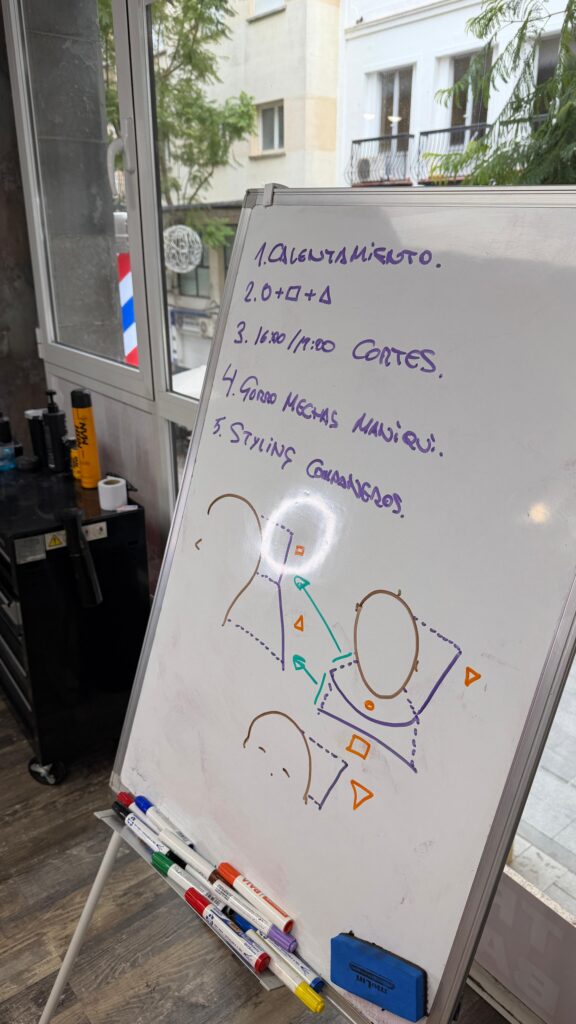 1. CALENTAMIENTO.
2. O+□+△
3. 16:00/17:00 CORTES.
4. GORRO MECHAS MANIQUI.
5. STYLING COMPAÑEROS.